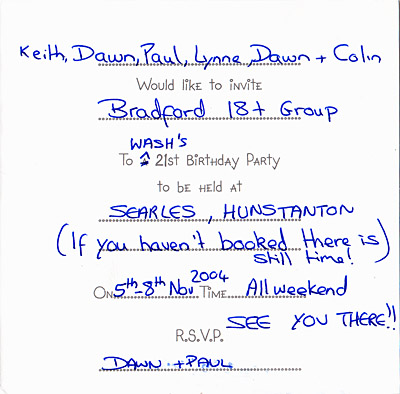 Keith, Dawn, Paul, Lynne, Dawn + Colin
Would like to invite
Bradford 18+ Group
WASH'S
To 21st Birthday Party
to be held at
SEARLES, HUNSTANTON
(If you haven't booked there is
still time!)
On 5th-8th Nov 2004 Time All weekend
SEE YOU THERE!!
R.S.V.P.
DAWN + PAUL